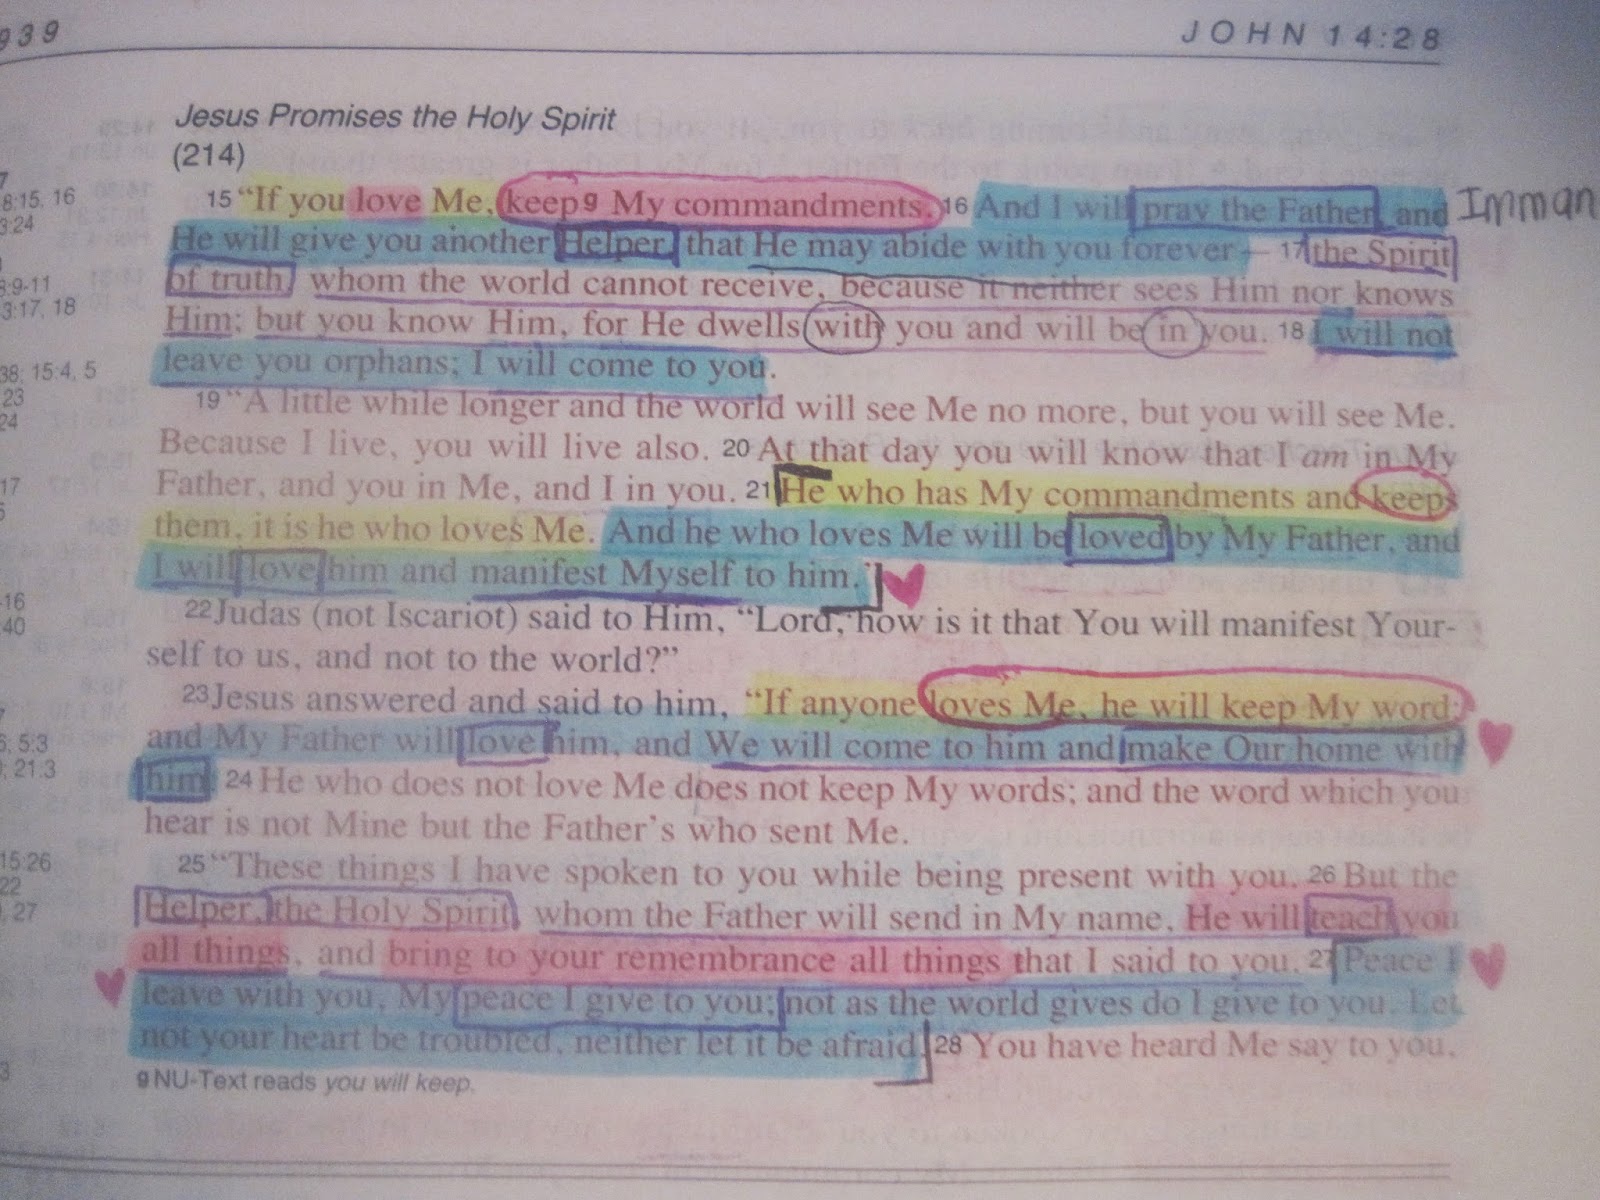 939 JOHN 14:28
Jesus Promises the Holy Spirit
(214)
15 “If you love Me, keep9 My commandments. 16 And I will pray the Father, and Imman
He will give you another Helper, that He may abide with you forever— 17 the Spirit
of truth, whom the world cannot receive, because it neither sees Him nor knows
Him; but you know Him, for He dwells with you and will be in you. 18 I will not
leave you orphans; I will come to you.
19 “A little while longer and the world will see Me no more, but you will see Me.
Because I live, you will live also. 20 At that day you will know that I am in My
Father, and you in Me, and I in you. 21 He who has My commandments and keeps
them, it is he who loves Me. And he who loves Me will be loved by My Father, and
I will love him and manifest Myself to him.”
22 Judas (not Iscariot) said to Him, “Lord, how is it that You will manifest Your-
self to us, and not to the world?”
23 Jesus answered and said to him, “If anyone loves Me, he will keep My word;
and My Father will love him, and We will come to him and make Our home with
him. 24 He who does not love Me does not keep My words; and the word which you
hear is not Mine but the Father’s who sent Me.
25 “These things I have spoken to you while being present with you. 26 But the
Helper, the Holy Spirit, whom the Father will send in My name, He will teach you
all things, and bring to your remembrance all things that I said to you. 27 Peace I
leave with you, My peace I give to you; not as the world gives do I give to you. Let
not your heart be troubled, neither let it be afraid. 28 You have heard Me say to you,
9 NU-Text reads you will keep.
7
8:15, 16
3:24
8:9-11
3:17, 18
38; 15:4, 5
23
24
17
-16
40
6; 5:3
21:3
15:26
22
, 27
3